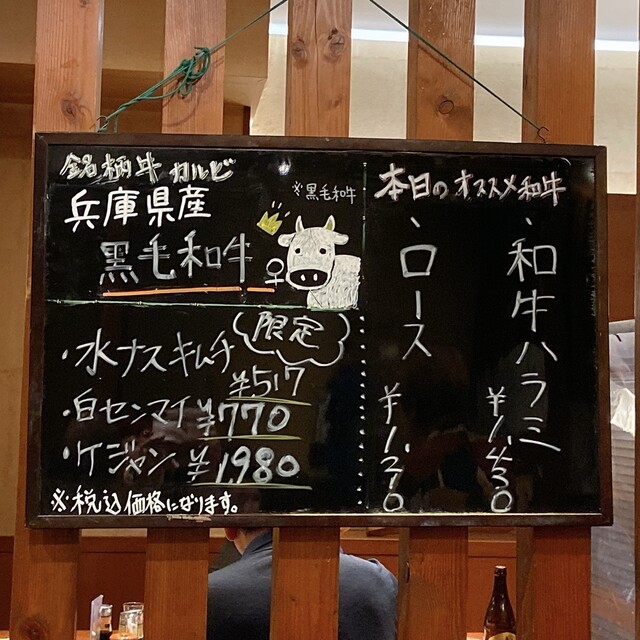 銘柄牛カルビ
兵庫県産
黒毛和牛♀
※黒毛和牛
限定
・水ナスキムチ
¥517
・白センマイ ¥770
・ケジャン ¥1,980
※税込価格になります。
本日のオススメ和牛
、和牛ハラミ
¥1,450
、ロース
¥1,210